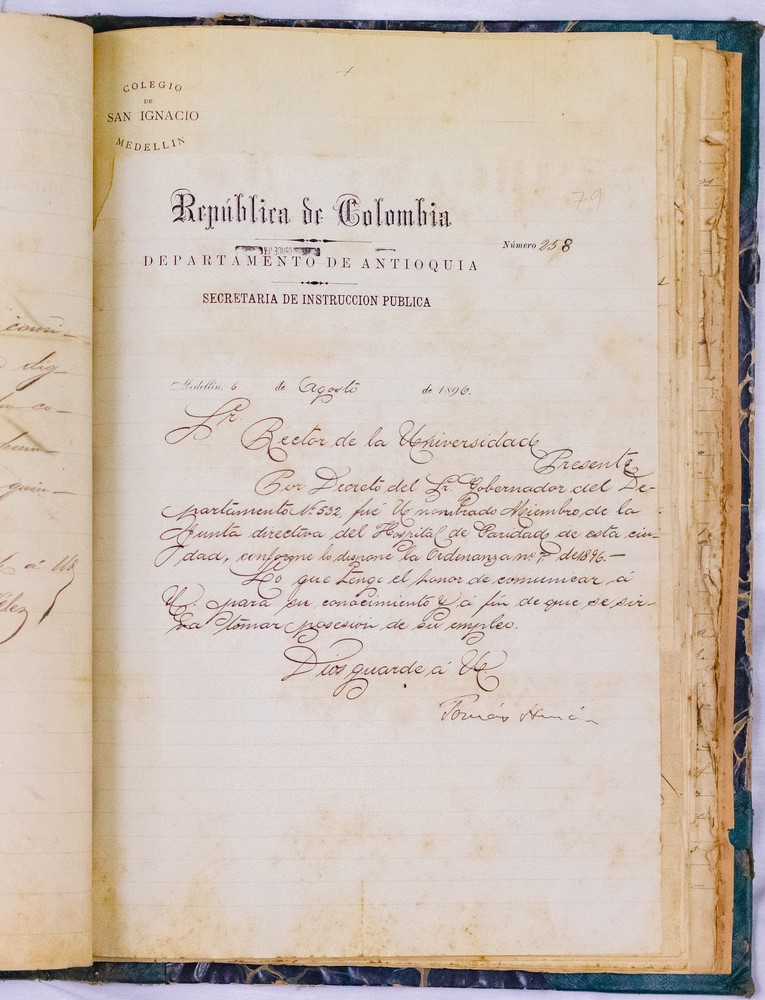 COLEGIO
DE
SAN IGNACIO
MEDELLIN
79
República de Colombia
Número 258
DEPARTAMENTO DE ANTIOQUIA
SECRETARIA DE INSTRUCCION PUBLICA
Medellín, 6 de Agosto de 1896.
Sr.
Rector de la Universidad
Presente
Por Decreto del Sr. Gobernador del De-
partamento Nº 532, fué U nombrado Miembro de la
Junta directiva del Hospital de Caridad de esta ciu-
dad, conforme lo dispone la Ordenanza nº de 1896.-
Lo que tengo el honor de comunicar á
U. para su conocimiento y á fin de que se sir-
va tomar posesión de su empleo.
Dios guarde á U
Tomás
consi-
dig
co-
quin-
á U